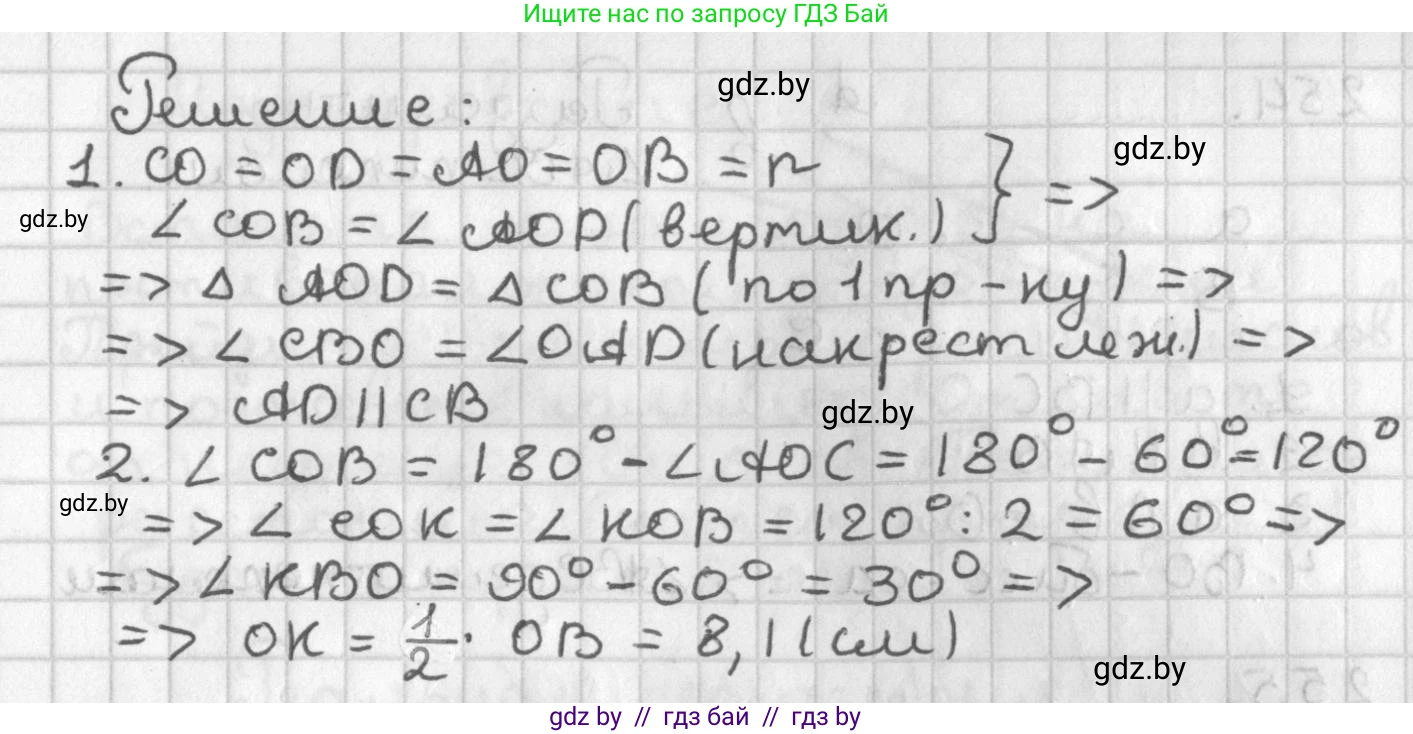 Ищите нас по запросу ГДЗ Бай
Решение:
gdz.by
1. CO = OD = AO = OB = r
gdz.by
} =>
gdz.by
∠ COB = ∠ AOD (вертик.)
=> Δ AOD = Δ COB (по 1 пр-ку) =>
=> ∠ CBO = ∠OAD (накрест леж.) =>
=> AD || CB
gdz.by
2. ∠ COB = 180° - ∠AOC = 180° - 60° = 120°
gdz.by
=> ∠ COK = ∠ KOB = 120° : 2 = 60° =>
=> ∠ KBO = 90° - 60° = 30° =>
=> OK = 1/2 · OB = 8,1 (см)
gdz.by
gdz by // гдз бай // гдз by